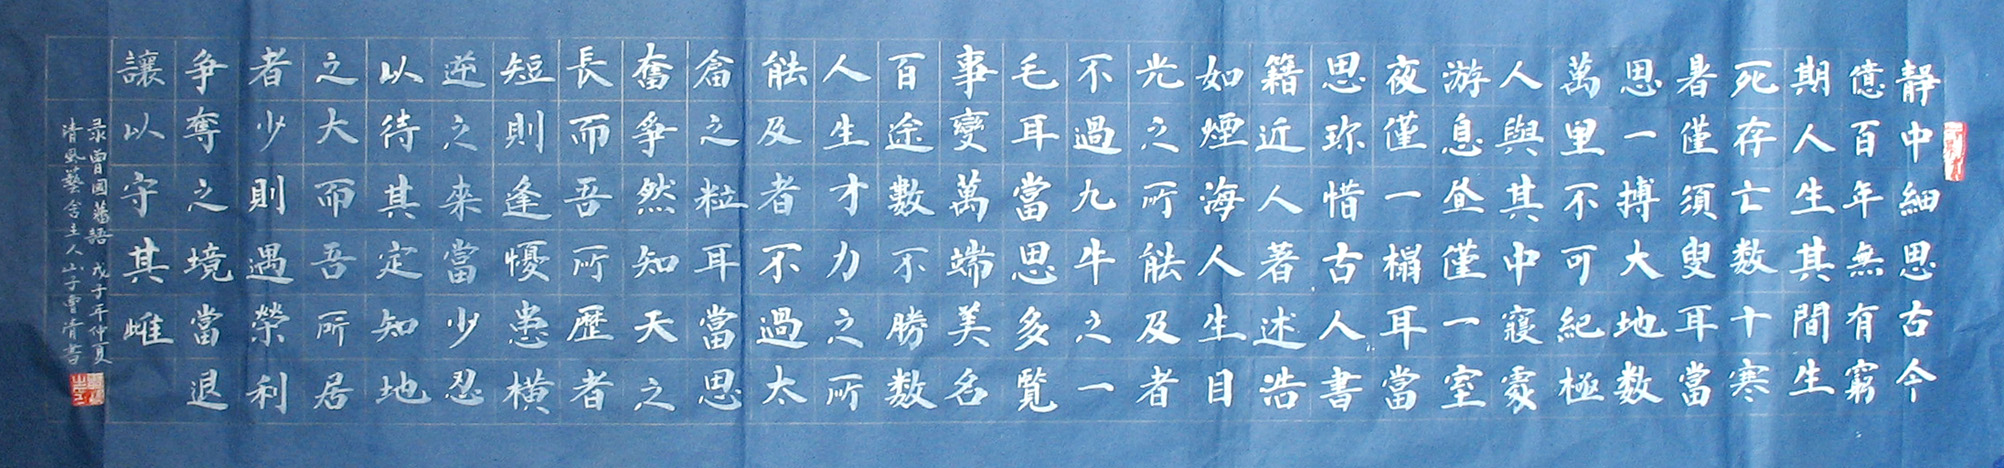 靜中細思古今
億百年無有窮
期人生其間生
死存亡数十寒
暑僅須臾耳當
思一搏大地数
萬里不可紀極
人與其中寢處
游息昼僅一室
夜僅一榻耳當
思珎惜古人書
籍近人著述浩
如煙海人生目
光之所能及者
不過九牛之一
毛耳當思多覧
事變萬端美名
百途數不勝数
人生才力之所
能及者不過太
倉之粒耳當思
奮爭然知天之
長而吾所歷者
短則逢憂患橫
逆之來當少忍
以待其定知地
之大而吾所居
者少則遇榮利
争奪之境當退
讓以守其雌
录曾國藩語 戊子年仲夏
清風藝舍主人山子曹清書